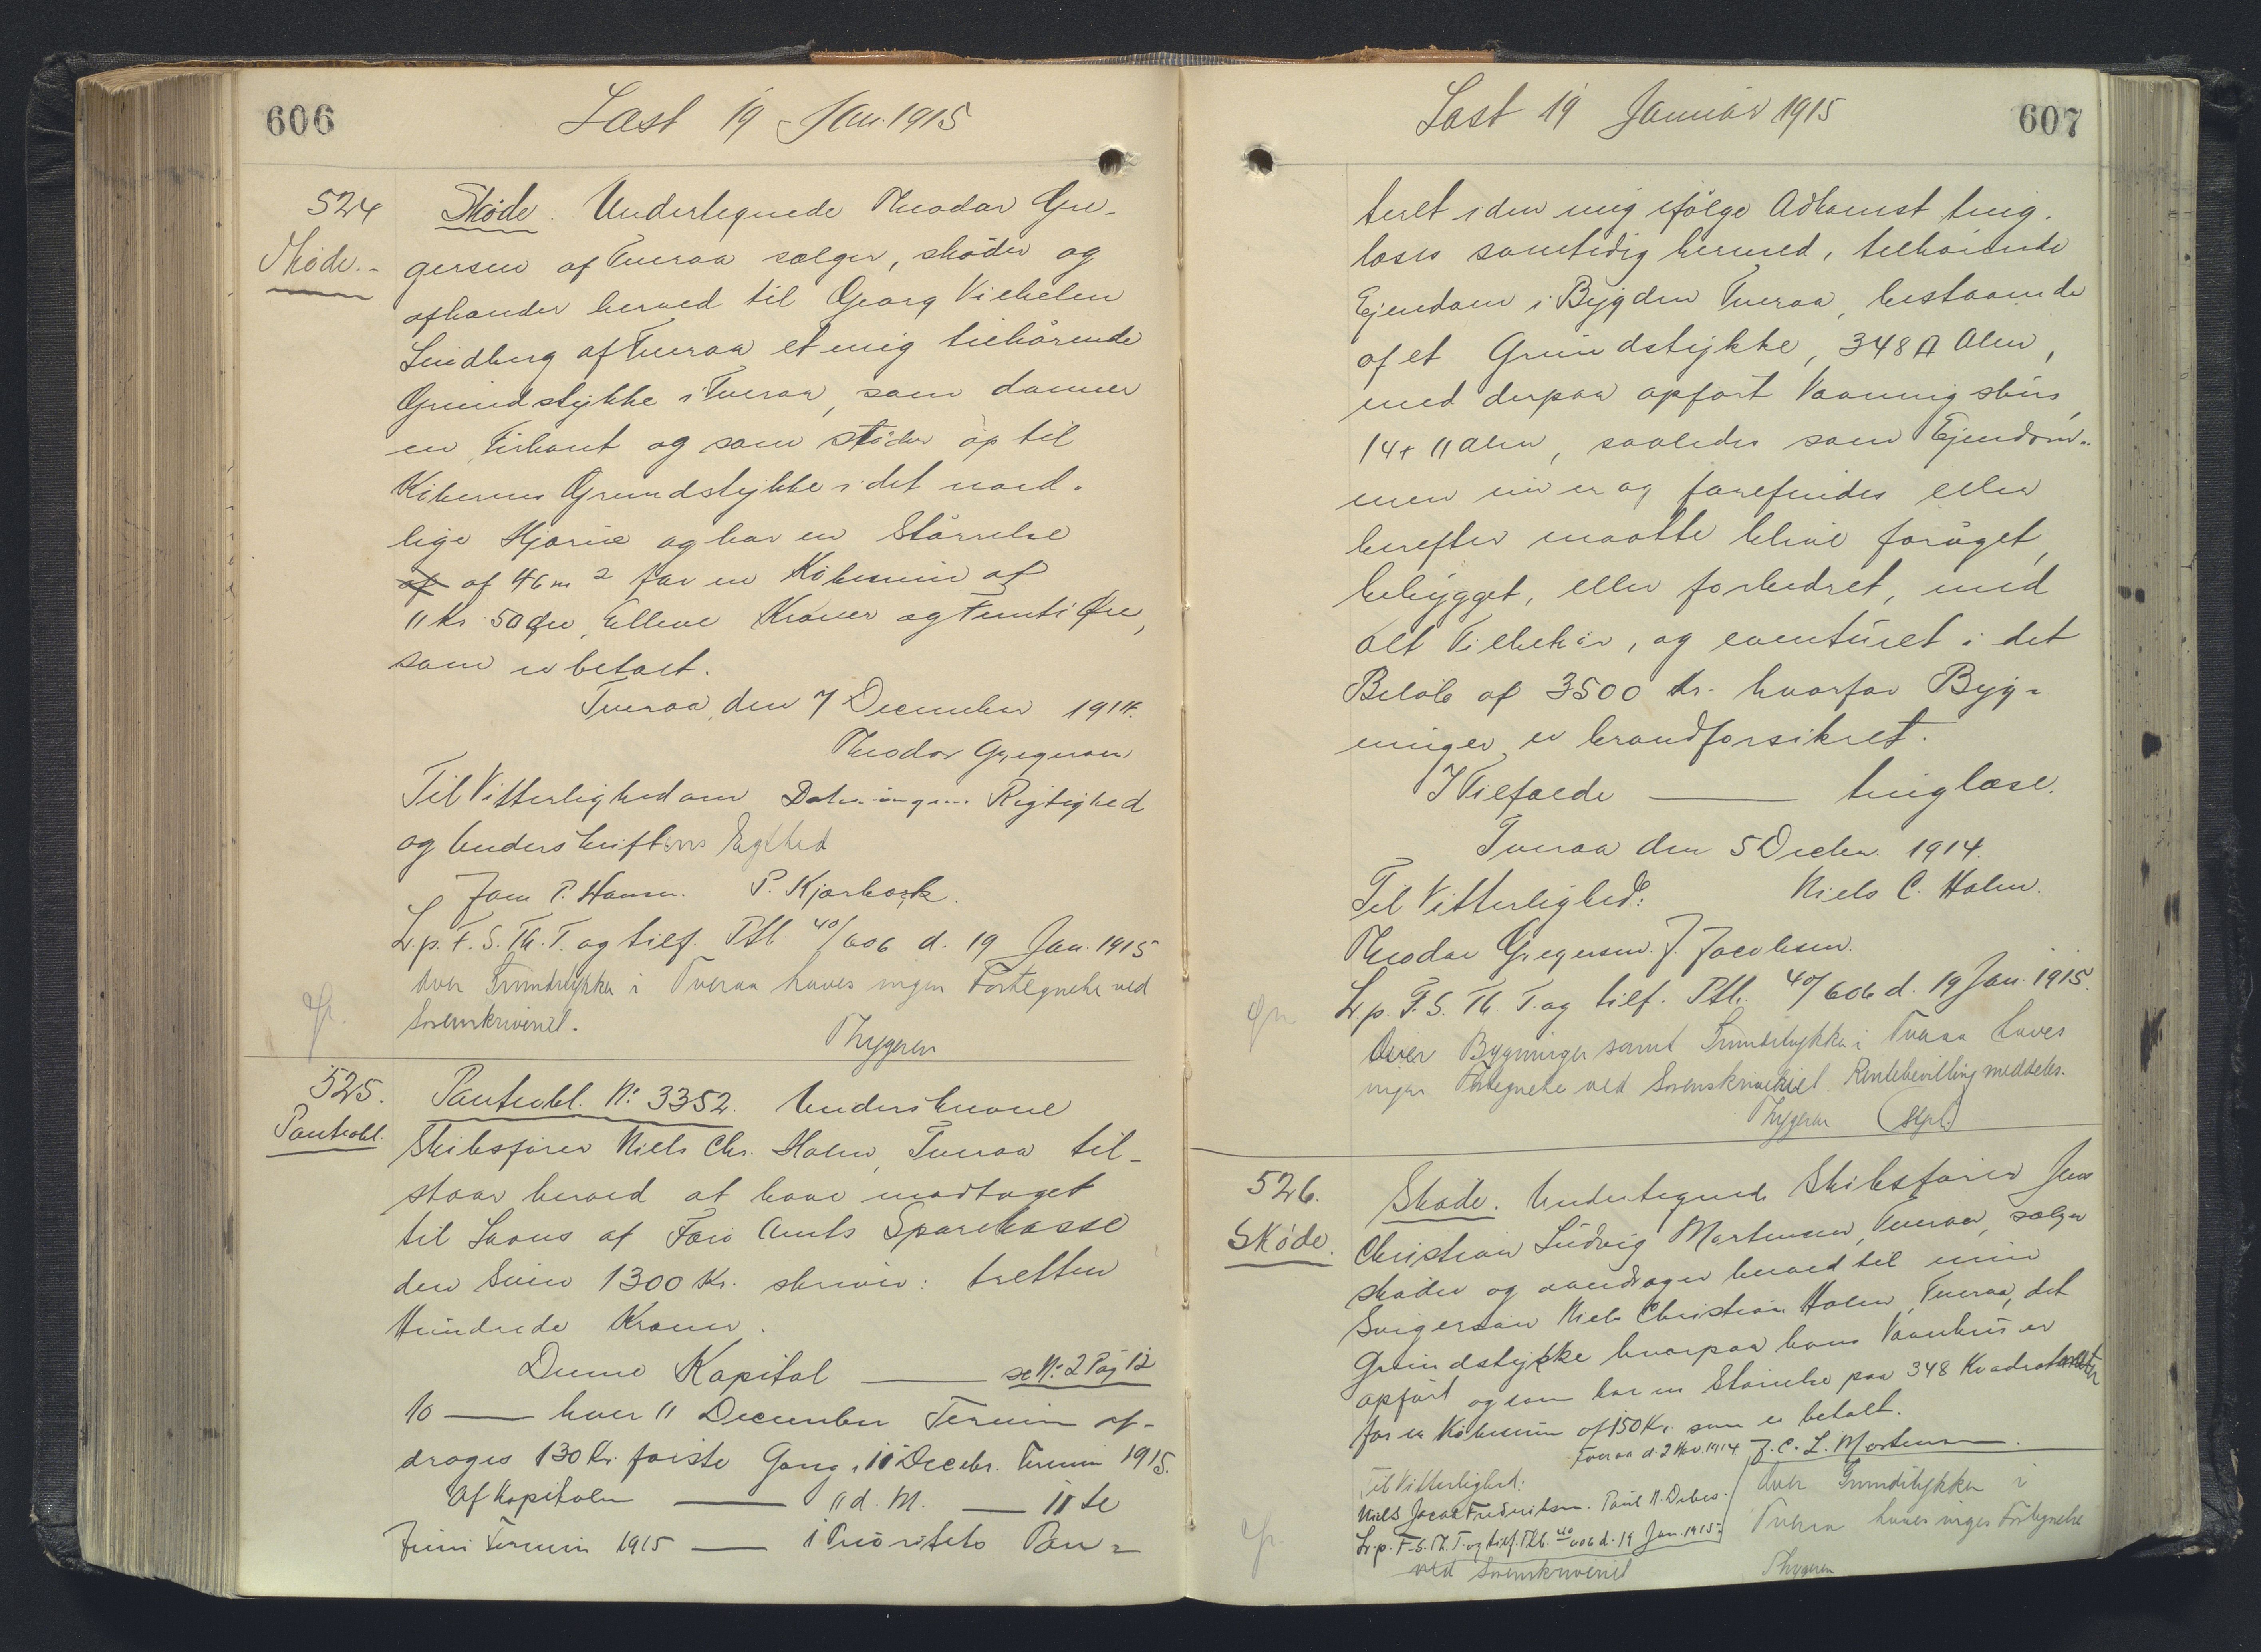 606
Læst 19 Jan. 1915
524
Skøde.-
Skøde. Undertegnede Theodor Gre-
gersen af Tveraa sælger, skøder og
afhænder herved til Georg Vilhelm
Lindberg af Tveraa et mig tilhørende
Grundstykke i Tveraa, som danner
en Firkant og som støder op til
Køberens Grundstykke i det nord-
lige Hjørne og har en Størrelse
af af 46 m² for en Købesum af
11 Kr. 50 Øre, Elleve Kroner og Femti Øre,
som er betalt.
Tveraa, den 7 December 1914.
Theodor Gregersen
Til Vitterlighed om Dateringens Rigtighed
og Underskriftens Ægthed
Joen P. Hansen. P. Kjørbæk.
L. p. F. S. Th. T. og tilf. Ptb. 40/606 d. 19 Jan. 1915
Over Grundstykker i Tveraa haves ingen Fortegnelse ved
Sorenskriveriet.
Thygesen
525.
Panteobl.
Panteobl. No 3352. Underskrevne
Skibsfører Niels Chr. Holm, Tveraa til-
staar herved at have modtaget
til Laans af Færø Amts Sparekasse
den Sum 1300 Kr. skriver: tretten
Hundrede Kroner.
Denne Kapital — se No 2 Pag 12
10 — hver 11 December Termin af-
drages 130 Kr. første Gang i 11 Decebr. Termin 1915.
Af Kapitalen — 11 d. M. — 11te
Juni Termin 1915 — 1 Prioritets Pan-
607
Læst 19 Januar 1915
teret i den mig ifølge Adkomst ting-
læses samtidig hermed, tilhørende
Ejendom i Bygden Tveraa, bestaaende
af et Grundstykke, 348 □ Alen,
med derpaa opført Vaaningshus,
14 x 11 Alen, saaledes som Ejendom-
men nu er og forefindes eller
herefter maatte blive forøget,
bebygget, eller forbedret, med
alt Tilbehør, og eventuelt i det
Beløb af 3500 Kr. hvorfor Byg-
ninger er brandforsikret.
I Tilfælde — tinglæse.
Tveraa den 5 Decbr. 1914.
Til Vitterlighed: Niels C. Holm.
Theodor Gregersen. J. Jacobsen.
L. p. F. S. Th. T. og tilf. Ptb. 40/606 d. 19 Jan. 1915.
Over Bygninger samt Grundstykker i Tveraa haves
ingen Fortegnelse ved Sorenskriveriet. Rentebevilling meddeles.
Thygesen (Stpl.)
526.
Skøde.
Skøde. Undertegnede Skibsfører Jens
Christian Ludvig Mortensen, Tveraa, sælger
skøder og overdrager herved til min
Svigersøn Niels Christian Holm, Tveraa, det
Grundstykke hvorpaa hans Vaanhus er
opført og som har en Størrelse paa 348 Kvadratalen
for en Købesum af 150 Kr. som er betalt.
Tveraa d. 2 Nov. 1914 J. C. L. Mortensen.
Til Vitterlighed:
Niels Jacob Frederiksen. Poul N. Debes.
L. p. F. S. Th. T. og tilf. Ptb. 40/606 d. 19 Jan. 1915.
Over Grundstykker i
Tveraa haves ingen Fortegnelse
ved Sorenskriveriet
Thygesen